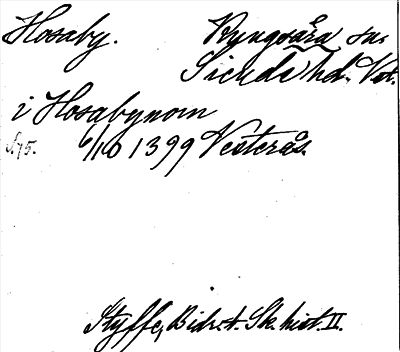 Hosaby. Ryngsåra sn.
Siende hd. Vst.
i Hosabynom
S. 75. 6/10 1399 Vesterås.
Styffe, Bidr. t. Sk. hist. II.